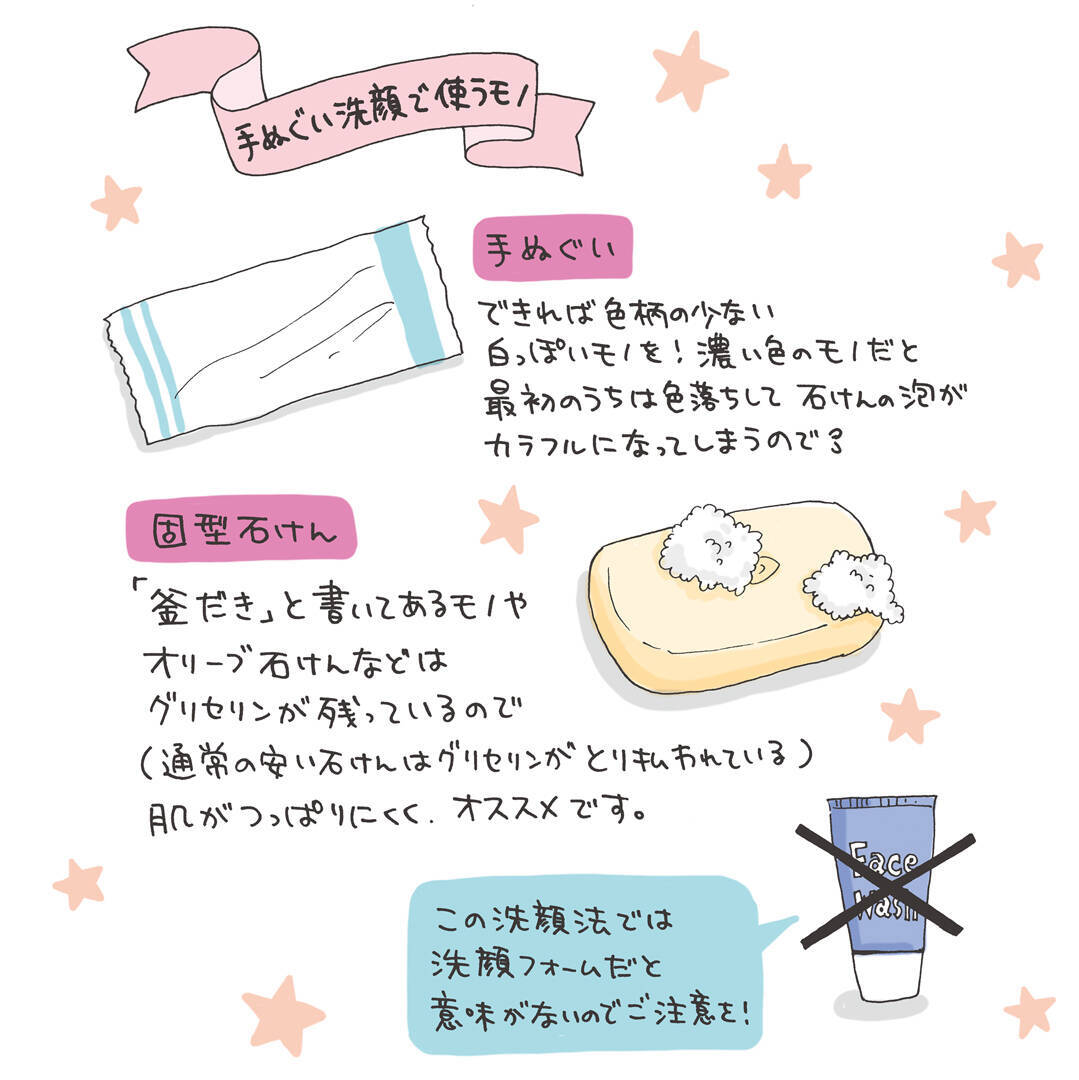 手ぬぐい洗顔で使うモノ
手ぬぐい
できれば色柄の少ない
白っぽいモノを!濃い色のモノだと
最初のうちは色落ちして 石けんの泡が
カラフルになってしまうので〜
固型石けん
「釜だき」と書いてあるモノや
オリーブ石けんなどは
グリセリンが残っているので
(通常の安い石けんはグリセリンがとり払われている)
肌がつっぱりにくく、オススメです。
Face
Wash
この洗顔法では
洗顔フォームだと
意味がないのでご注意を!